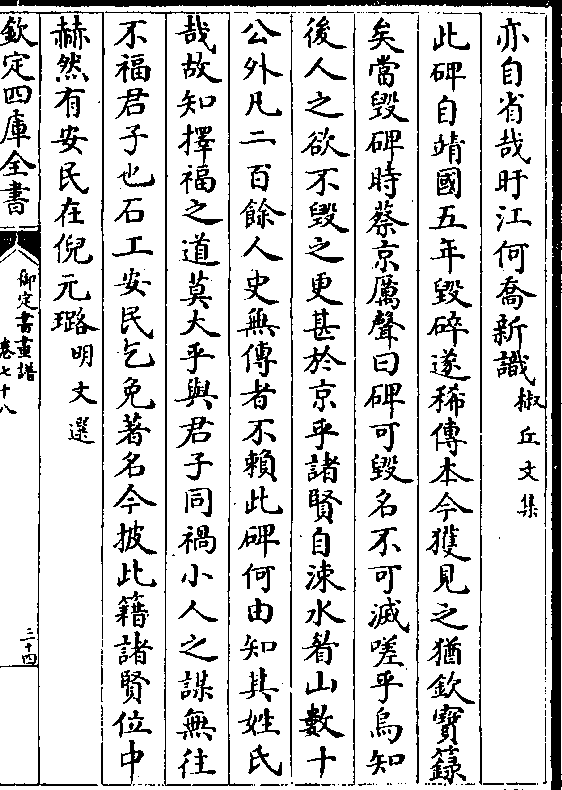 亦自省哉盱江何喬新識椒丘文集
此碑自靖國五年毀碎遂稀傳本今獲見之猶欽寶籙
矣當毀碑時蔡京厲聲曰碑可毀名不可滅嗟乎烏知
後人之欲不毀之更甚於京乎諸賢自涑水眷山數十
公外凡二百餘人史無傳者不賴此碑何由知其姓氏
哉故知擇福之道莫大乎與君子同禍小人之謀無往
不福君子也石工安民乞免著名今披此籍諸賢位中
赫然有安民在倪元璐明文選
欽定四庫全書
御定書畫譜
卷七十八
三十四